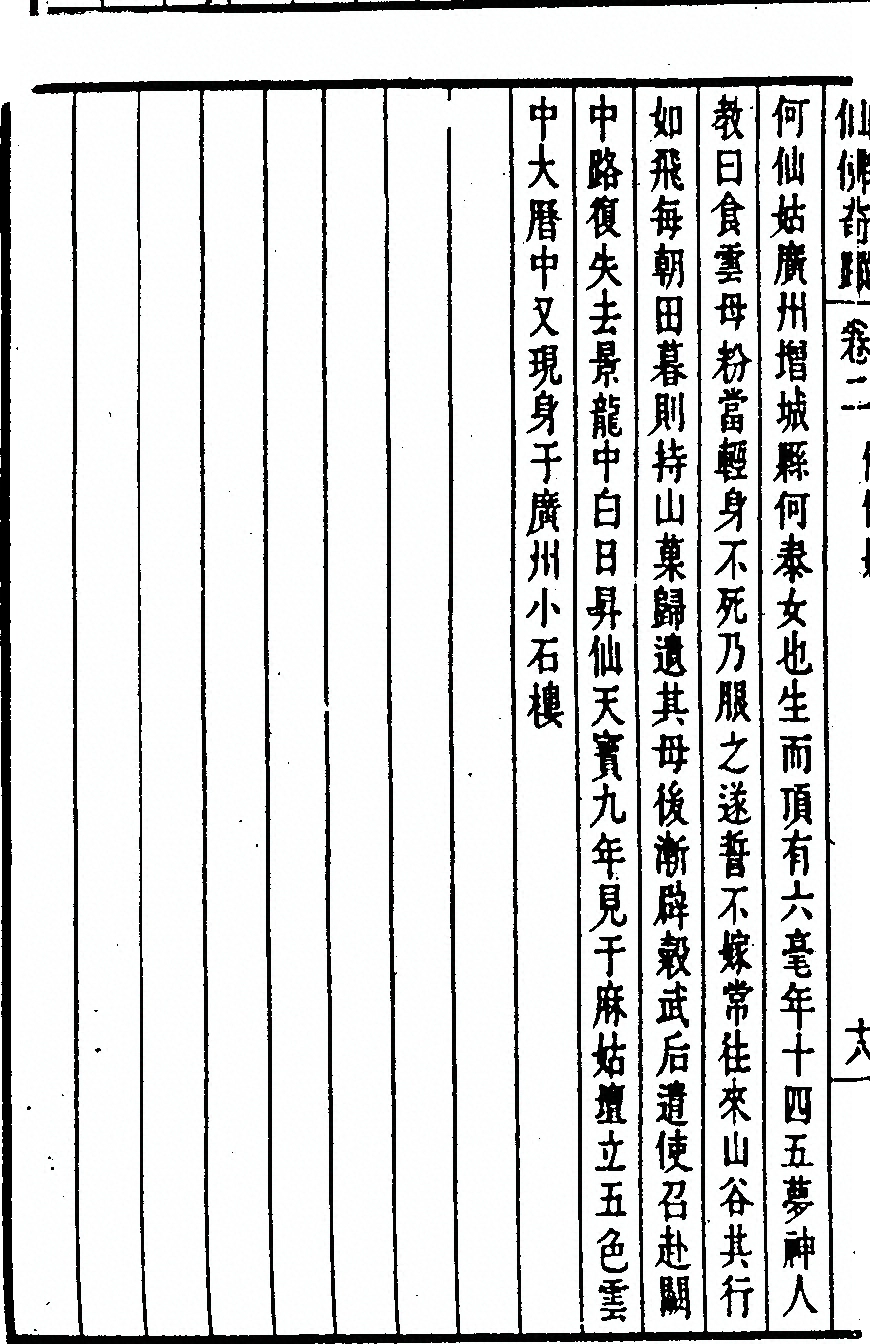 仙佛奇蹤 卷二 十八
何仙姑廣州增城縣何泰女也生而頂有六毫年十四五夢神人
教曰食雲母粉當輕身不死乃服之遂誓不嫁常往來山谷其行
如飛每朝田暮則持山菓歸遺其母後漸辟穀武后遣使召赴闕
中路復失去景龍中白日昇仙天寶九年見于麻姑壇立五色雲
中大曆中又現身于廣州小石樓